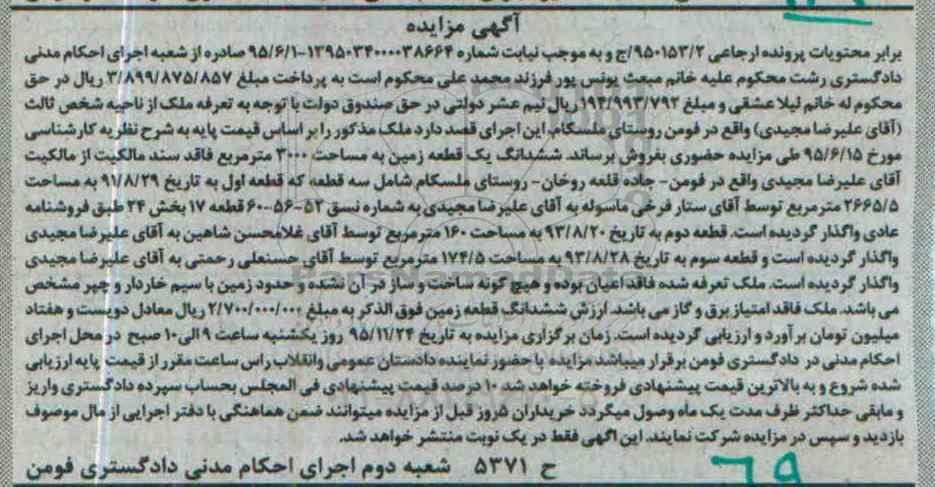 آگهی مزایده
برابر محتویات پرونده ارجاعی ۹۵۰۱۵۳/۲/ج و به موجب نیابت شماره ۱۳۹۵۰۳۴۰۰۰۰۳۸۶۶۴-۹۵/۶/۱ صادره از شعبه اجرای احکام مدنی
دادگستری رشت محکوم علیه خانم مبعث یونس پور فرزند محمد علی محکوم است به پرداخت مبلغ ۳/۸۹۹/۸۷۵/۸۵۷ ریال در حق
محکوم له خانم لیلا عشقی و مبلغ ۱۹۴/۹۹۳/۷۹۲ ریال نیم عشر دولتی در حق صندوق دولت با توجه به تعرفه ملک از ناحیه شخص ثالث
(آقای علیرضا مجیدی) واقع در فومن روستای ملسکام، این اجرای قصد دارد ملک مذکور را بر اساس قیمت پایه به شرح نظریه کارشناسی
مورخ ۹۵/۶/۱۵ طی مزایده حضوری بفروش برساند. ششدانگ یک قطعه زمین به مساحت ۳۰۰۰ مترمربع فاقد سند مالکیت از مالکیت
آقای علیرضا مجیدی واقع در فومن- جاده قلعه روخان- روستای ملسکام شامل سه قطعه که قطعه اول به تاریخ ۹۱/۸/۲۹ به مساحت
۲۶۶۵/۵ مترمربع توسط آقای ستار فرخی ماسوله به آقای علیرضا مجیدی به شماره نسق ۵۲-۵۶-۶۰ قطعه ۱۷ بخش ۲۴ طبق فروشنامه
عادی واگذار گردیده است. قطعه دوم به تاریخ ۹۳/۸/۲۰ به مساحت ۱۶۰ مترمربع توسط آقای غلامحسن شاهین به آقای علیرضا مجیدی
واگذار گردیده است و قطعه سوم به تاریخ ۹۳/۸/۲۸ به مساحت ۱۷۴/۵ مترمربع توسط آقای حسنعلی رحمتی به آقای علیرضا مجیدی
واگذار گردیده است. ملک تعرفه شده فاقد اعیان بوده و هیچ گونه ساخت و ساز در آن نشده و حدود زمین با سیم خاردار و چپر مشخص
می باشد. ملک فاقد امتیاز برق و گاز می باشد. ارزش ششدانگ قطعه زمین فوق الذکر به مبلغ ۲/۷۰۰/۰۰۰/۰۰۰ ریال معادل دویست و هفتاد
میلیون تومان برآورد و ارزیابی گردیده است. زمان برگزاری مزایده به تاریخ ۹۵/۱۱/۲۴ روز یکشنبه ساعت ۹ الی ۱۰ صبح در محل اجرای
احکام مدنی در دادگستری فومن برقرار میباشد مزایده با حضور نماینده دادستان عمومی وانقلاب راس ساعت مقرر از قیمت پایه ارزیابی
شده شروع و به بالاترین قیمت پیشنهادی فروخته خواهد شد ۱۰ درصد قیمت پیشنهادی فی المجلس بحساب سپرده دادگستری واریز
و مابقی حداکثر ظرف مدت یک ماه وصول میگردد خریداران ۵روز قبل از مزایده میتوانند ضمن هماهنگی با دفتر اجرایی از مال موصوف
بازدید و سپس در مزایده شرکت نمایند. این آگهی فقط در یک نوبت منتشر خواهد شد.
ح ۵۳۷۱ شعبه دوم اجرای احکام مدنی دادگستری فومن